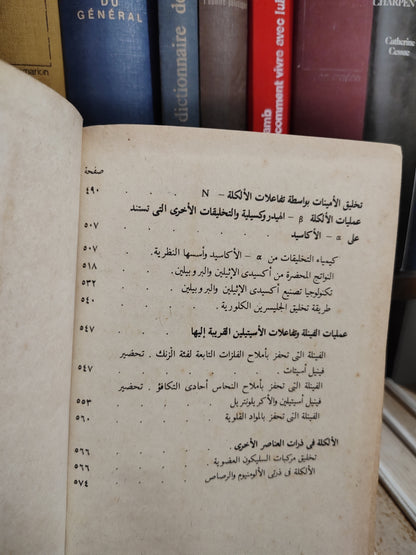 DU
GÉNÉRAL
dictionnaire de
l'économie politique
comment vivre avec lui
amb
CHARPENT
Catherine
Cessne
marion
صفحة
تخليق الأمينات بواسطة تفاعلات الألكلة – N . . . ٤٩٠
عمليات الألكلة β – الهيدروكسيلية والتخليقات الأخرى التى تستند
على α – الأكاسيد . . . . . ٥٠٧
كيمياء التخليقات من α – الأكاسيد وأسسها النظرية . ٥٠٧
النواتج المحضرة من أكسيدى الإثيلين والبروبيلين . ٥١٨
تكنولوجيا تصنيع أكسيدى الإثيلين والبروبيلين . ٥٣٢
طريقة تخليق الجليسرين الكلورية . . . ٥٤٠
عمليات الفينلة وتفاعلات الأسيتيلين القريبة إليها ٥٤٧
الفينلة التى تحفز بأملاح الفلزات التابعة لفئة الزنك . تحضير
فينيل أسيتات . . . . . ٥٤٧
الفينلة التى تحفز بأملاح النحاس أحادى التكافؤ . تحضير
فينيل أسيتيلين والأكريلونتريل . . . ٥٥٣
الفينلة التى تحفز بالمواد القلوية . . . ٥٦٠
الألكلة فى ذرات العناصر الأخرى . . . . ٥٦٦
تخليق مركبات السليكون العضوية . . . ٥٦٦
الألكلة فى ذرتى الألومنيوم والرصاص . . ٥٧٤